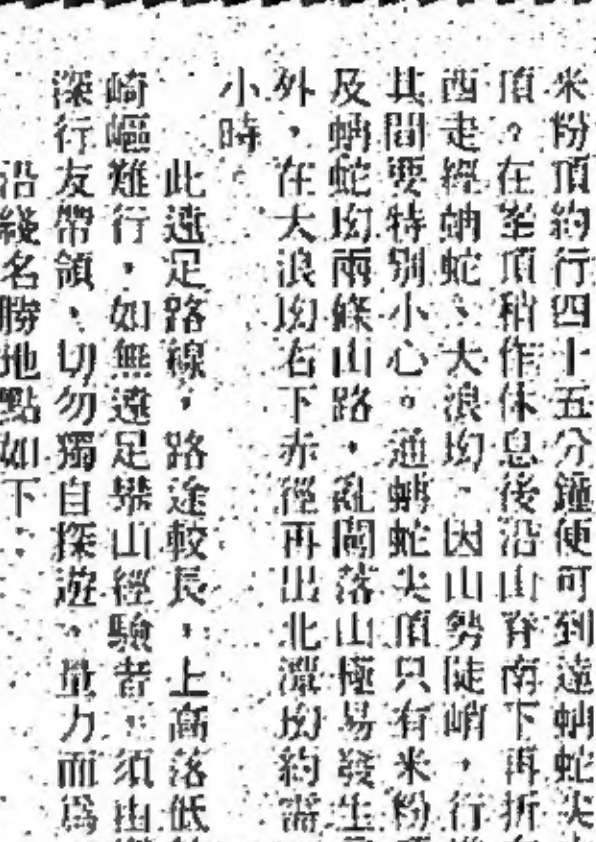 米粉頂約行四十五分鐘便可到達蚺蛇尖
頂。在峯頂稍作休息後沿山脊南下再折
西走經蚺蛇、大浪坳、因山勢陡峭,行
其間要特别小心。通蚺蛇尖頂只有米粉
及蚺蛇坳兩條山路,亂闖落山極易發生
外,在大浪坳右下赤徑再出北潭坳約需
小時
此遠足路線,路途較長,上高落低
崎嶇難行,如無遠足攀山經驗者,須由
深行友帶領、切勿獨自探遊、量力而爲
沿綫名勝地點如下: